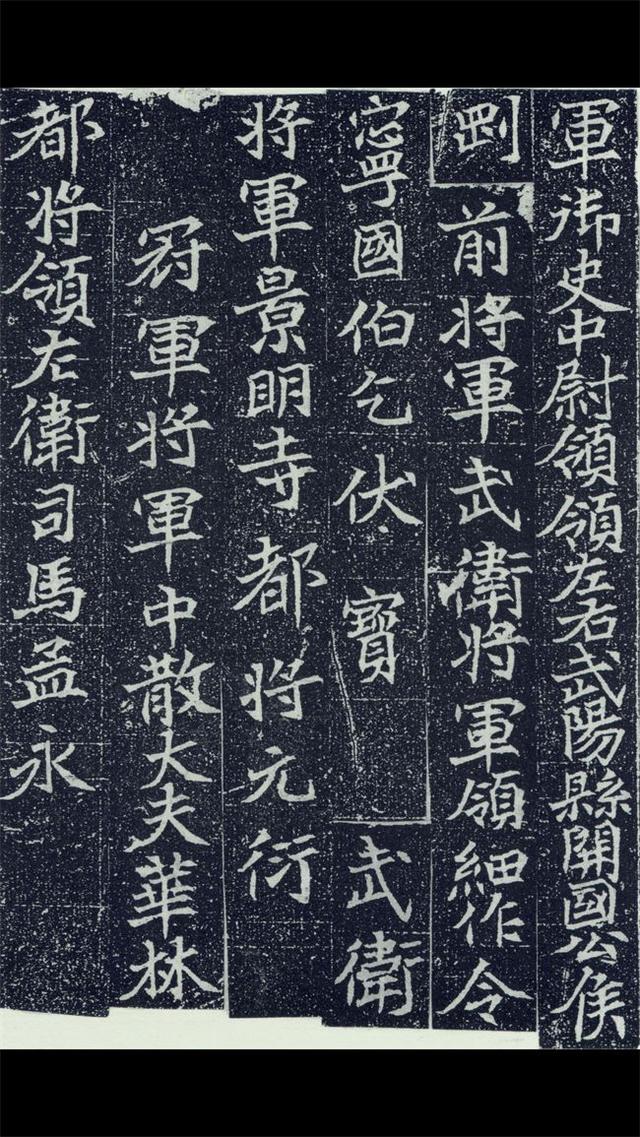 軍御史中尉領領左右武陽縣開國公侯
剛前將軍武衛將軍領細作令
寧國伯乞伏寶武衛
將軍景明寺都將元衍
冠軍將軍中散大夫華林
都將領左衛司馬孟永